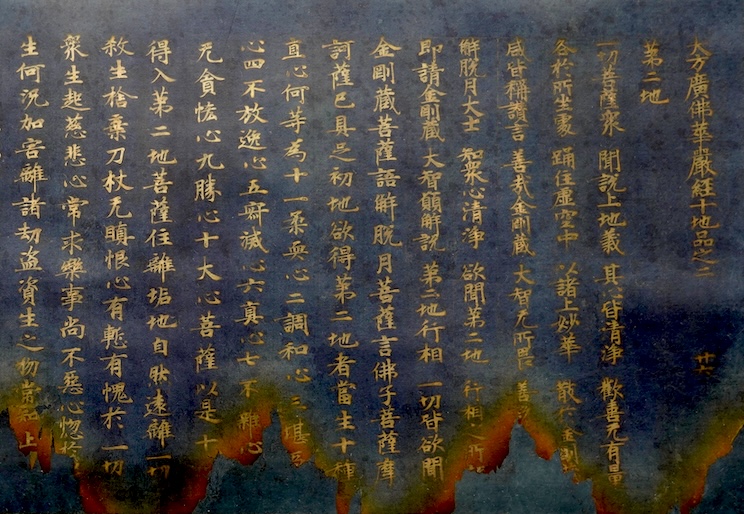 大方廣佛華嚴經十地品之二 廿六
第二地
一切菩薩衆 聞說上地義 其心皆清淨 歡喜无有量
各於所坐處 踊住虛空中 以諸上妙華 散於金剛
咸皆稱讚言 善哉金剛藏 大智无所畏 善
解脫月大士 智衆心清淨 欲聞第二地 行相之所
即請金剛藏 大智願解說 第二地行相 一切皆欲聞
金剛藏菩薩語解脫月菩薩言佛子菩薩摩
訶薩已具足初地欲得第二地者當生十種
直心何等為十一柔耎心二調和心三堪受
心四不放逸心五寂滅心六真心七不雜心
无貪悋心九勝心十大心菩薩以是十
得入第二地菩薩住離垢地自然遠離一切
煞生捨棄刀杖无瞋恨心有慙有愧於一切
衆生起慈悲心常求樂事尚不惡心惱於
生何況加害離諸劫盜資生之物常